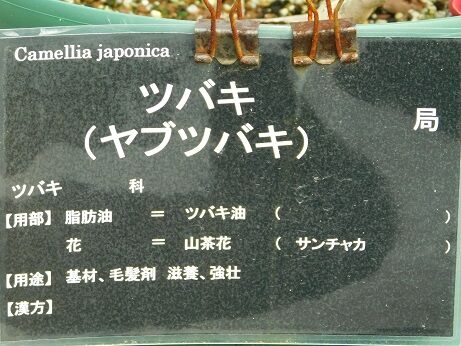 Camellia japonica
ツバキ
(ヤブツバキ) 局
ツバキ 科
【用部】 脂肪油 ＝ ツバキ油 ( )
花 ＝ 山茶花 ( サンチャカ )
【用途】 基材、毛髪剤 滋養、強壮
【漢方】